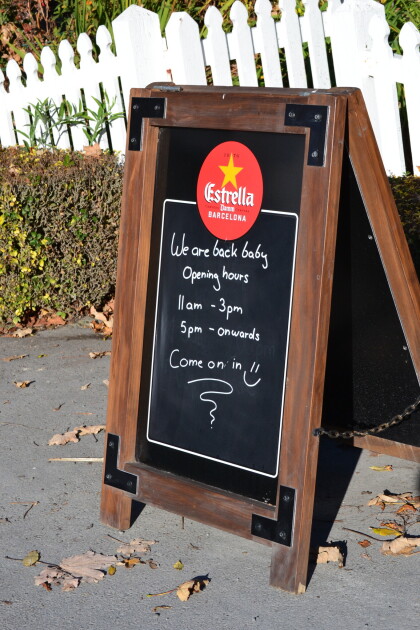 Estrella
Damm
BARCELONA
We are back baby
Opening hours
11am - 3pm
5pm - onwards
Come on in